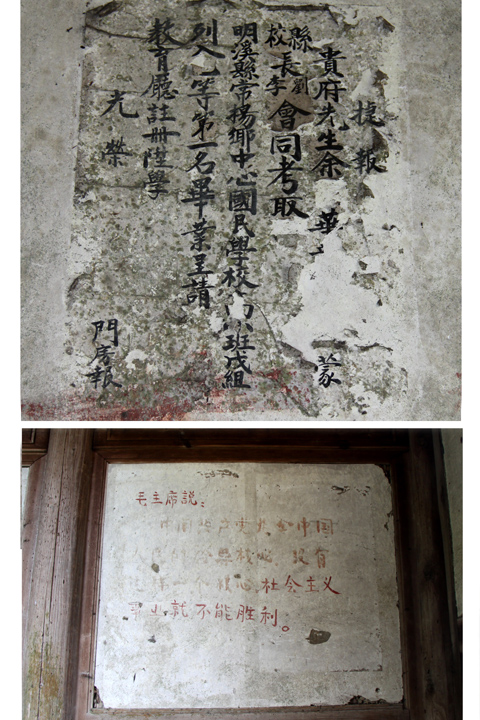 捷報
貴府先生余 華 蒙
縣長劉
校長李 會同考取
明溪縣常楊鄉中心國民學校高小班戊組
列入乙等第一名畢業呈請
教育廳註冊陞學
光榮
門房報
毛主席説：
中国共产党是全中国
人民的领导核心 没有
这样一个核心 社会主义
事业就不能胜利。